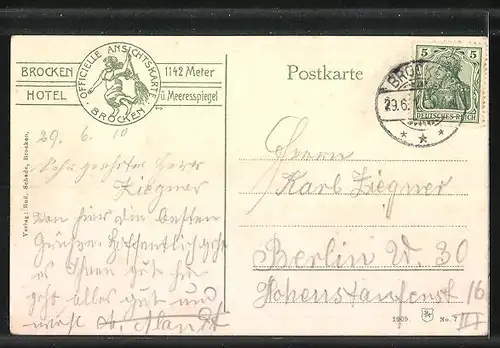 OFFICIELLE ANSICHTSKARTE
BROCKEN
BROCKEN
HOTEL
1142 Meter
ü. Meeresspiegel
Postkarte
5 5
DEUTSCHES REICH
BROCKEN
29.6.
29. 6. 10
Sehr geehrter Herr
Ziegner
Von hier die besten
Grüße Hoffentlich geht
es Ihnen gut hier
geht alles gut und
Herrn
Karl Ziegner
Berlin W. 30
Hohenstaufenst 16
III
Verlag: Rud. Schade, Brocken.
1909 No. 7